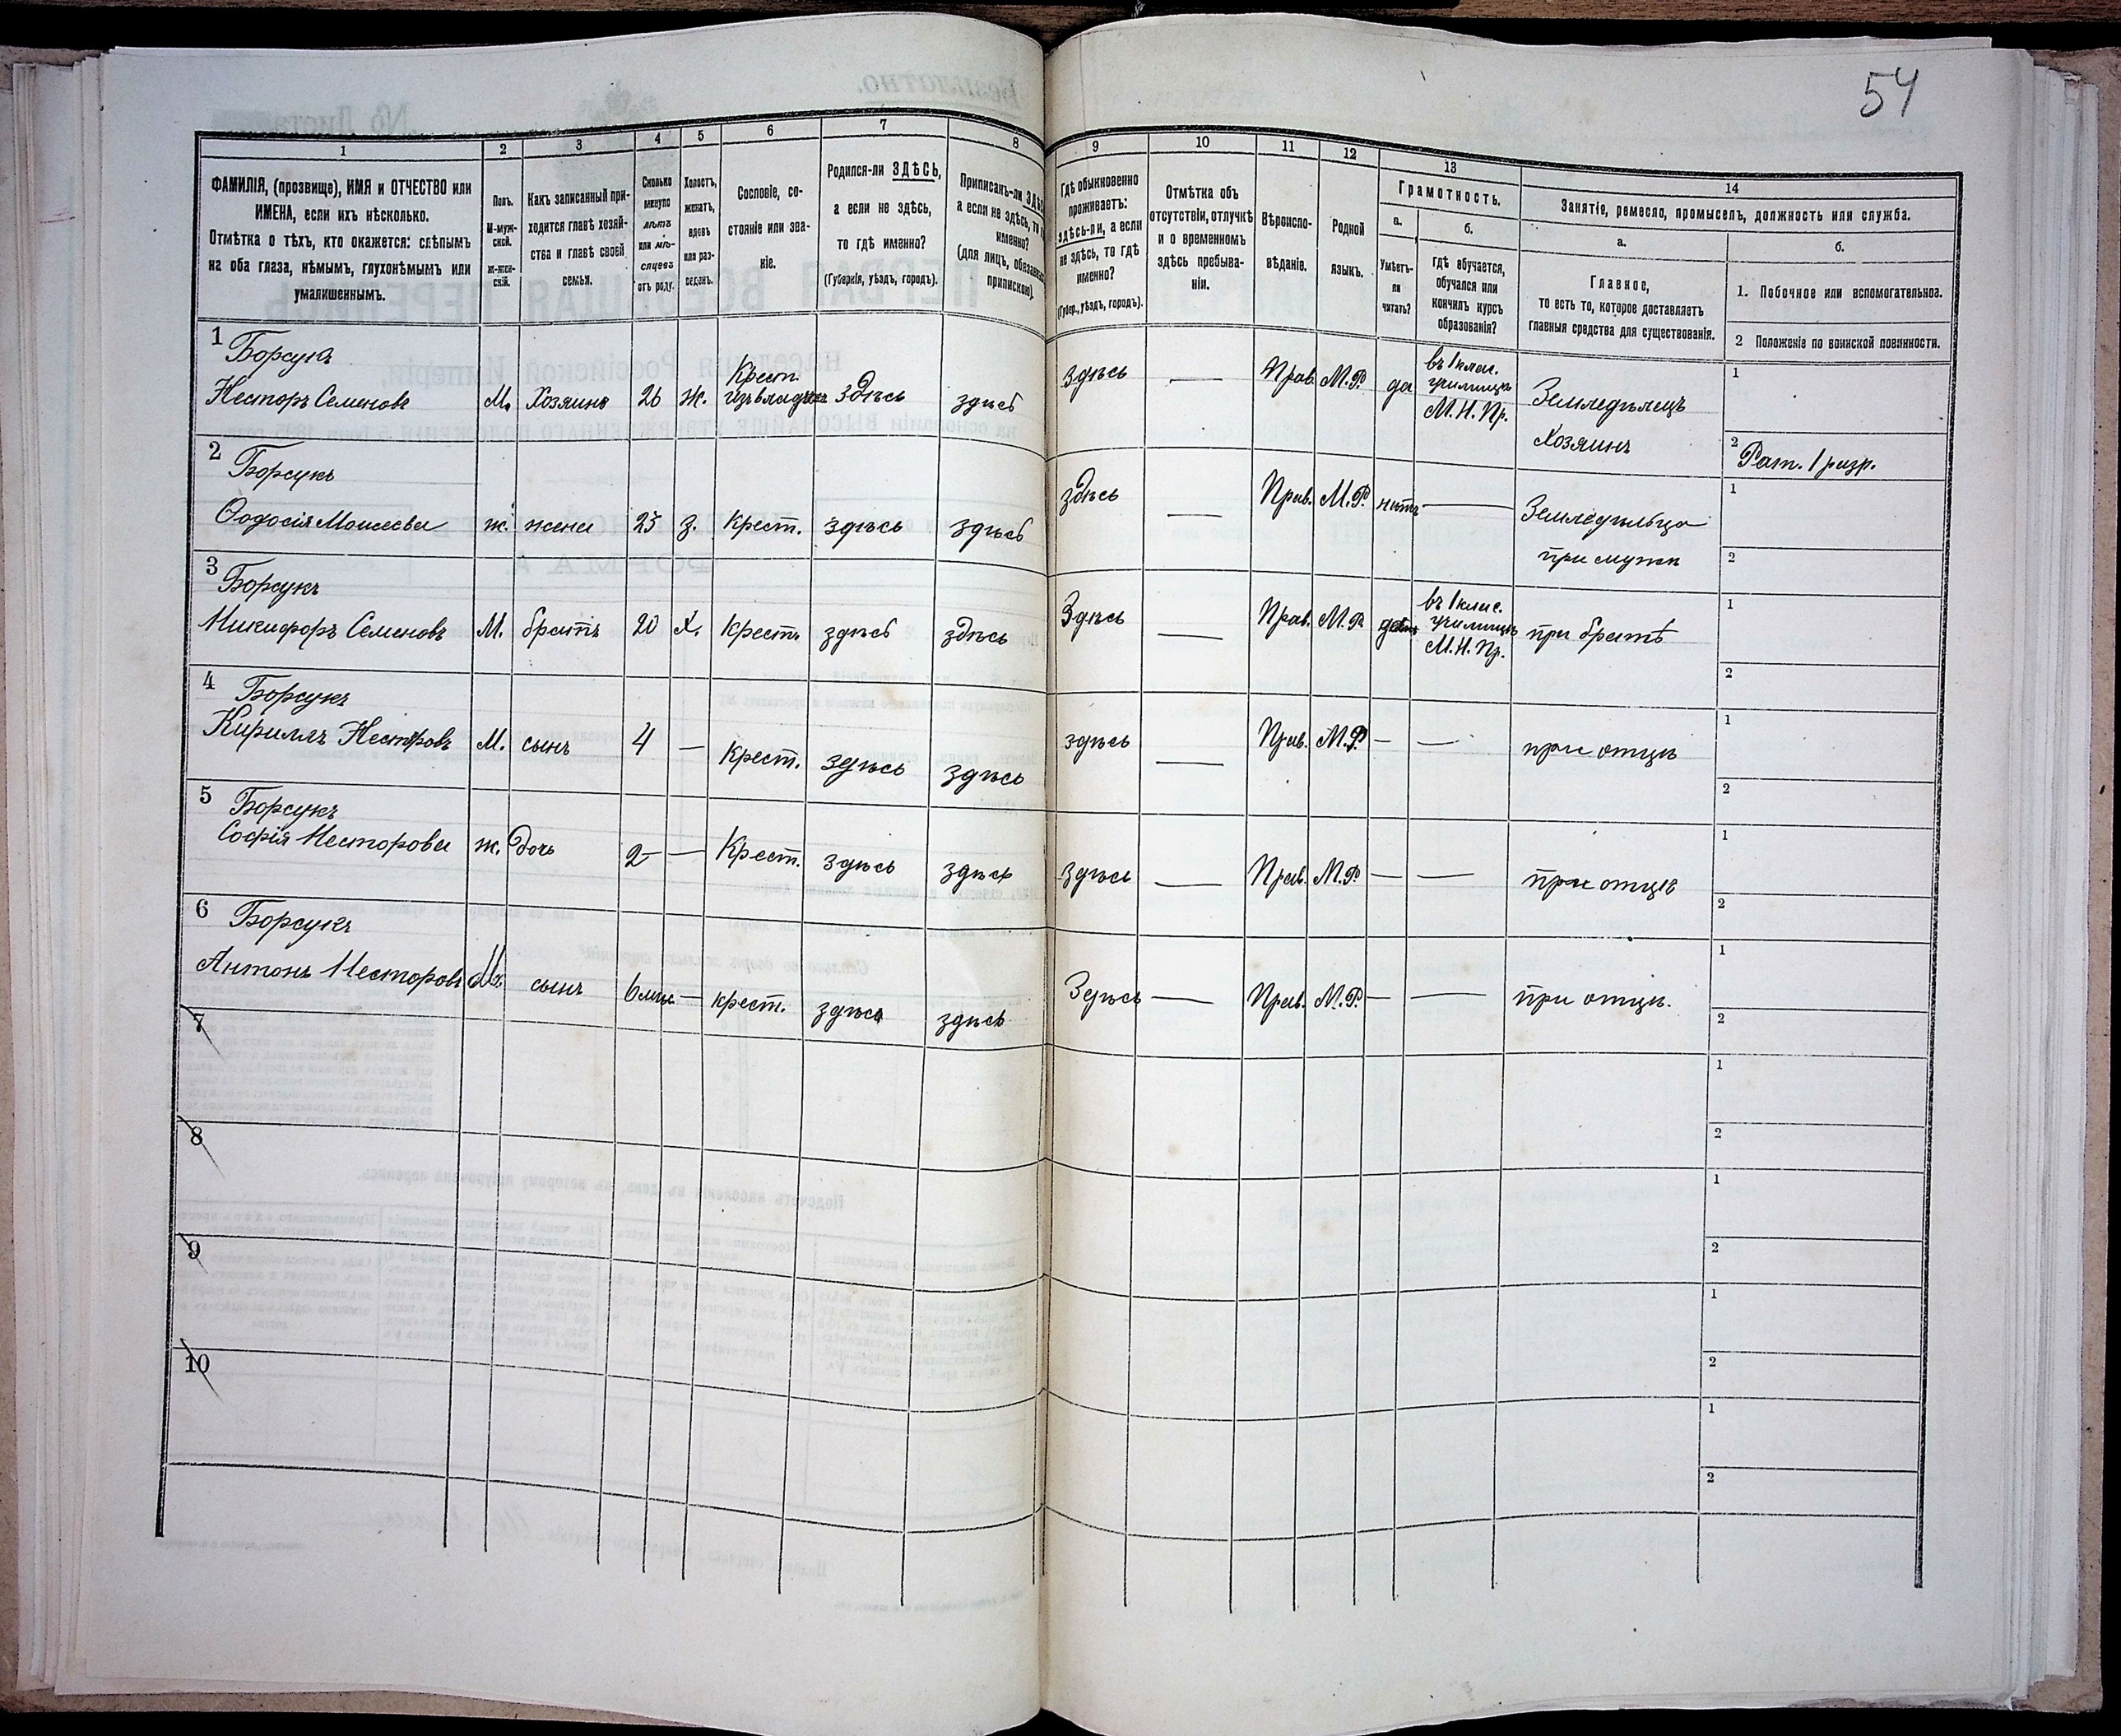 54
1
2
3
4
5
6
7
8
9
10
11
12
13
14
ФАМИЛІЯ, (прозвище), ИМЯ и ОТЧЕСТВО или
ИМЕНА, если ихъ нѣсколько.
Отмѣтка о тѣхъ, кто окажется: слѣпымъ
на оба глаза, нѣмымъ, глухонѣмымъ или
умалишеннымъ.
Полъ.
М-муж-
ской.
ж-жен-
скій.
Какъ записанный при-
ходится главѣ хозяй-
ства и главѣ своей
семьи.
Сколько
минуло
лѣтъ
или мѣ-
сяцевъ
отъ роду.
Холостъ,
женатъ,
вдовъ
или раз-
веденъ.
Сословіе, со-
стояніе или зва-
ніе.
Родился-ли ЗДѢСЬ,
а если не здѣсь,
то гдѣ именно?
(Губернія, уѣздъ, городъ).
Приписанъ-ли
а если не здѣсь, то
именно?
(для лицъ,
припискою).
Гдѣ обыкновенно
проживаетъ:
здѣсь-ли, а если
не здѣсь, то гдѣ
именно?
(Губер., уѣздъ, городъ).
Отмѣтка объ
отсутствіи, отлучкѣ
и о временномъ
здѣсь пребыва-
ніи.
Вѣроиспо-
вѣданіе.
Родной
языкъ.
Грамотность.
а.
б.
Умѣетъ-
ли
читать?
гдѣ обучается,
обучался или
кончилъ курсъ
образованія?
Занятіе, ремесло, промыселъ, должность или служба.
а.
б.
Главное,
то есть то, которое доставляетъ
главныя средства для существованія.
1. Побочное или вспомогательное.
2 Положеніе по воинской повинности.
1 Борсукъ
Несторъ Семеновъ М. Хозяинъ 26 ж. Крест. здѣсь здѣсь здѣсь — Прав. М.Р. да въ 1 клас. училищѣ М.Н.Пр. Земледѣлецъ Хозяинъ
1
2 Рат. 1 разр.
2 Борсукъ
Ѳодосія Моисеева ж. жена 23 з. Крест. здѣсь здѣсь здѣсь — Прав. М.Р. нѣтъ — Земледѣльца при мужѣ
1
2
3 Борсукъ
Никифоръ Семеновъ М. братъ 20 х. Крест. здѣсь здѣсь Здѣсь — Прав. М.Р. въ 1 клас. училищѣ М.Н.Пр. при братѣ
1
2
4 Борсукъ
Кириллъ Несторовъ М. сынъ 4 — Крест. здѣсь здѣсь здѣсь — Прав. М.Р. — — при отцѣ
1
2
5 Борсукъ
Софія Несторова ж. дочь 2 — Крест. здѣсь здѣсь здѣсь — Прав. М.Р. — — при отцѣ
1
2
6 Борсукъ
Антонъ Несторовъ М. сынъ 6 мѣс. — крест. здѣсь здѣсь Здѣсь — Прав. М.Р. — — при отцѣ.
1
2
7
1
2
8
1
2
9
1
2
10
1
2